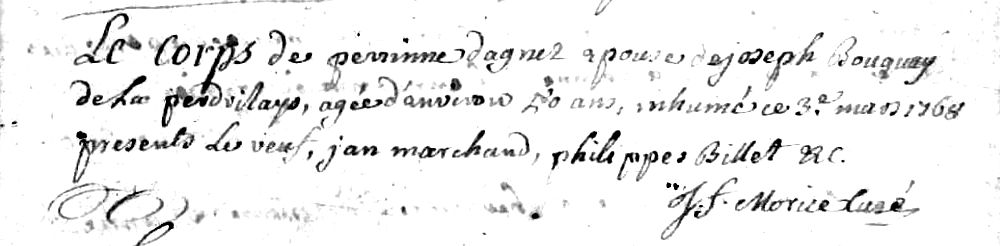 Le corps de perrinne dagnet epouse de joseph Bouquay
de La perdrilays, agée d'environ 50 ans, inhumé ce 3.e mars 1768
presents Le veuf, jan marchand, philippes Billet &c.
J. f. Morice Curé